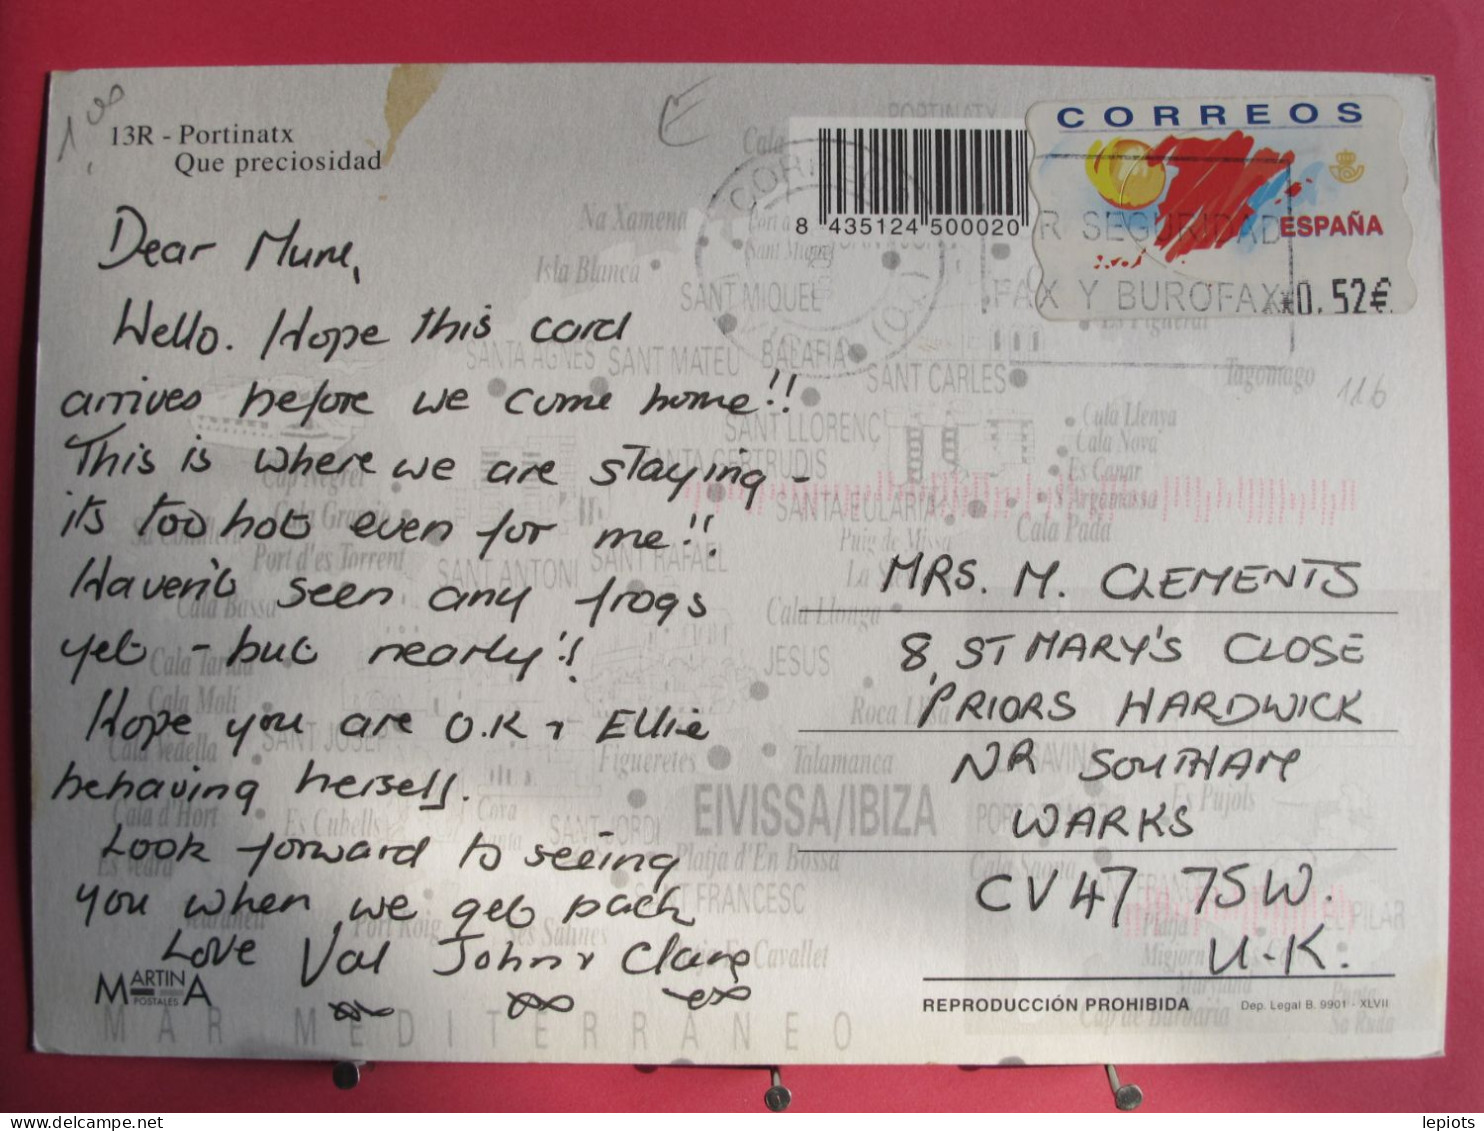 13R - Portinatx
Que preciosidad
Dear Mum,
Hello. Hope this card
arrives before we come home!!
This is where we are staying -
its too hot even for me!!
Haven't seen any frogs
yet - but nearly!!
Hope you are O.K + Ellie
behaving herself.
Look forward to seeing
you when we get back
Love Val John + Clare
MARTINA
POSTALES
CORREOS
ESPAÑA
*0,52€
R SEGURIDAD
FAX Y BUROFAX
8 435124 500020
E
116
MRS. M. CLEMENTS
8, ST MARY'S CLOSE
PRIORS HARDWICK
NR SOUTHAM
WARKS
CV47 7SW.
U.K.
REPRODUCCIÓN PROHIBIDA
Dep. Legal B. 9901 - XLVII
PORTINATX
Na Xamena
Isla Blanca
Sant Miquel
SANT MIQUEL
SANTA AGNES
SANT MATEU
BALAFIA
SANT CARLES
Tagomago
Es Figueral
SANT LLORENÇ
Cala Llenya
Cala Nova
Es Canar
S'Argamassa
Cala Pada
SANTA GERTRUDIS
SANTA EULARIA
Puig de Missa
Port d'es Torrent
SANT ANTONI
SANT RAFAEL
Cala Bassa
Cala Llonga
JESUS
Cala Tarida
Cala Molí
Cala Vedella
SANT JOSEP
Roca Llisa
Figueretes
Talamanca
Cala d'Hort
Es Cubells
SANT JORDI
EIVISSA/IBIZA
Platja d'En Bossa
SANT FRANCESC
Port Roig
Ses Salines
Es Cavallet
Es Pujols
Cala Saona
EL PILAR
Platja
Migjorn
Maryland
Cap de Barbaria
MAR MEDITERRÁNEO
lepiots